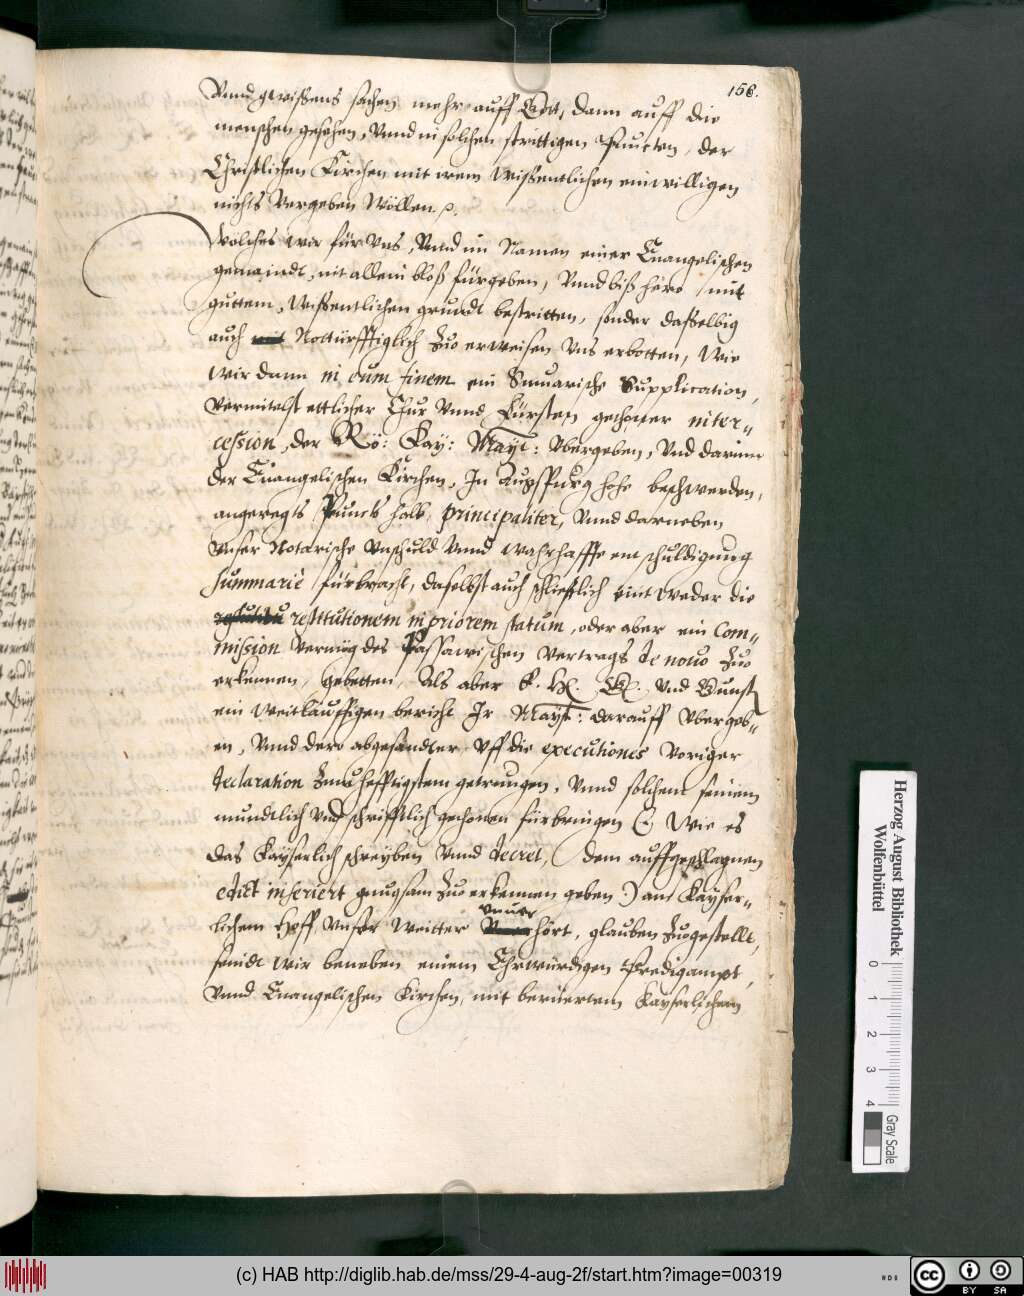 156.
Vnnd gewißens sachen mehr auff Gott, dann auff die
menschen gesehen, Vnnd in solchen strittigen Puncten, der
Christlichen Kirchen mit irem wißentlichen einwilligen
nichts Vergeben Wöllen.
Wolches wir für Vns, Vnnd im Namen einer Euangelischen
gemaindt, nit allein bloß fürgeben, Vnnd biß hero mit
guttem, Wißentlichen grundt bestritten, sonder daßelbig
auch mit Notturfftiglich Zuo erweisen Vns erbotten, Wie
wir dann in eum finem ein Sumarische Supplication,
Vermitelst ettlicher Chur Vnnd Fürsten gethoner inter=
cession, der Rö: Kay: Mayt: Vbergeben, Vnd darinn
der Euangelischen Kirchen, In Augspurg hohe beschwerden,
angeregts Puncts halb principaliter, Vnnd darneben
Vnser Notorische Vnschuld Vnnd wahrhaffte entschuldigung
summariè fürbracht, daselbst auch schließlich eintweder die
restitutionem in priorem statum, oder aber ein Com=
mission Vermög des Passawischen Vertrags de nouo Zuo
erkennen, gebetten, Als aber E. Vnd Gunst
ein Weitläuffigen bericht Ir Mayt: darauff Vbergeb=
en, Vnnd dero abgesandter Vff die executiones Voriger
declaration Zum hefftigstem getrungen, Vnnd solchem seinem
mundtlich Vnd schrifftlich gethonen fürbringen (: Wie es
das Kayserlich schreyben Vnnd decret, dem auffgeschlagnen
edict inseriert gnugsam Zuo erkennen geben :) am Kayser=
lichem Hoff Vnser Weitter Vnuer
hört, glauben Zuogestellt,
seindt wir beneben einem Ehrwürdigen Predigampt,
Vnnd Euangelischen Kirchen, mit berüertem Kayserlichem
Herzog August Bibliothek
Wolfenbüttel
0 1 2 3 4
Gray Scale
(c) HAB http://diglib.hab.de/mss/29-4-aug-2f/start.htm?image=00319
cc BY SA